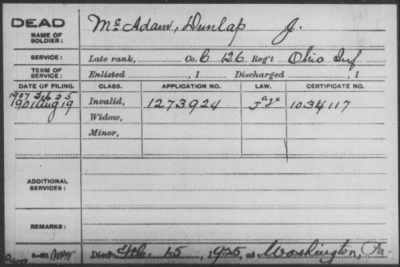 DEAD
NAME OF SOLDIER: McAdam, Dunlap J.
SERVICE: Late rank, Co. C 126 Reg't Ohio Inf
TERM OF SERVICE: Enlisted , 1 Discharged , 1
DATE OF FILING. CLASS. APPLICATION NO. LAW. CERTIFICATE NO.
1907 Feb 25
1901 Aug 19 Invalid, 1273924 1034117
Widow,
Minor,
ADDITIONAL SERVICES:
REMARKS:
Died Feb. 15, 1925, at Washington, Pa.